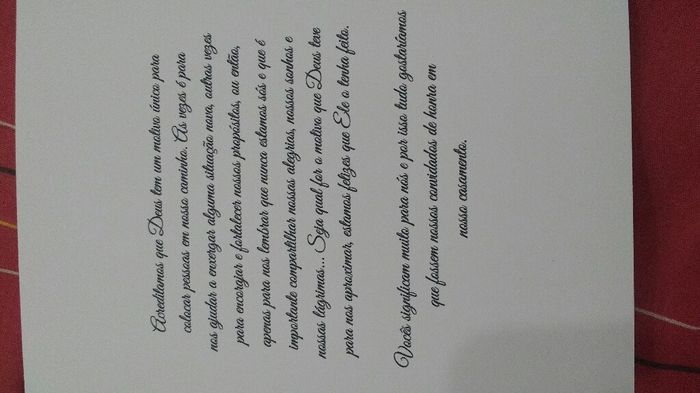 Acreditamos que Deus tem um motivo único para
colocar pessoas em nosso caminho. Às vezes é para
nos ajudar a enxergar alguma situação nova, outras vezes
para encorajar e fortalecer nossos propósitos, ou então,
apenas para nos lembrar que nunca estamos sós e que é
importante compartilhar nossas alegrias, nossos sonhos e
nossas lágrimas... Seja qual for o motivo que Deus teve
para nos aproximar, estamos felizes que Ele o tenha feito.
Vocês significam muito para nós e por isso tudo gostaríamos
que fossem nossos convidados de honra em
nosso casamento.